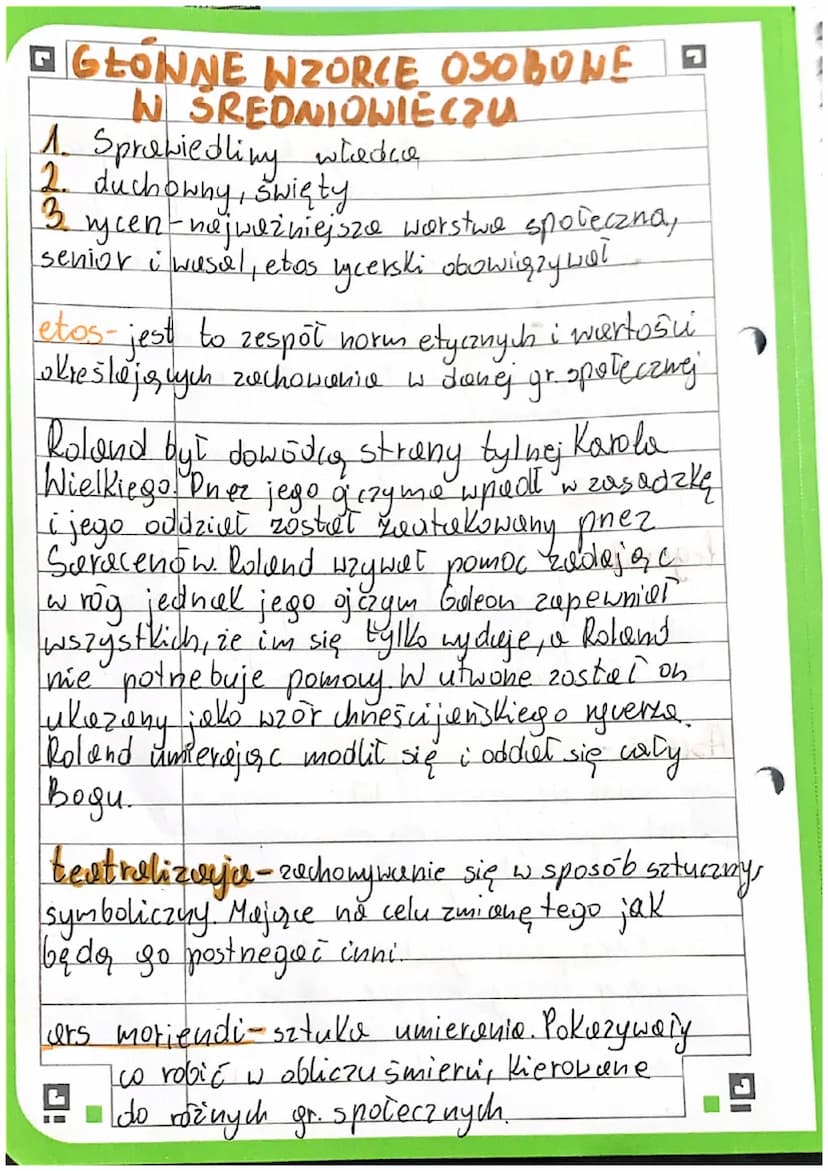 GŁÓWNE WZORCE OSOBOWE
W ŚREDNIOWIECZU
1. Sprawiedliwy władca
2. duchowny, święty
3 rycerz - najważniejsza warstwa społeczna,
senior i wasal, etos rycerski obowiązywał
etos - jest to zespół norm etycznych i wartości
określających zachowania w danej gr. społecznej
Roland był dowódcą strany tylnej Karola
Wielkiego. Przez jego ojczyma wpadł w zasadzkę
i jego oddział został zaatakowany przez
Saracenów. Roland wzywał pomoc żadając
w róg jednak jego ojczym Galeon zapewniał
wszystkich, że im się tylko wydaje, a Roland
nie potrzebuje pomocy. W utworze został on
ukazany jako wzór chrześcijańskiego rycerza.
Roland umierając modlił się i oddał się cały
Bogu.
teatralizacja - zachowywanie się w sposób sztuczny,
symboliczny. Mające na celu zmianę tego jak
będą go postrzegać inni.
ars moriendi - sztuka umierania. Pokazywały
co robić w obliczu śmierci, kierowane
do różnych gr. społecznych.